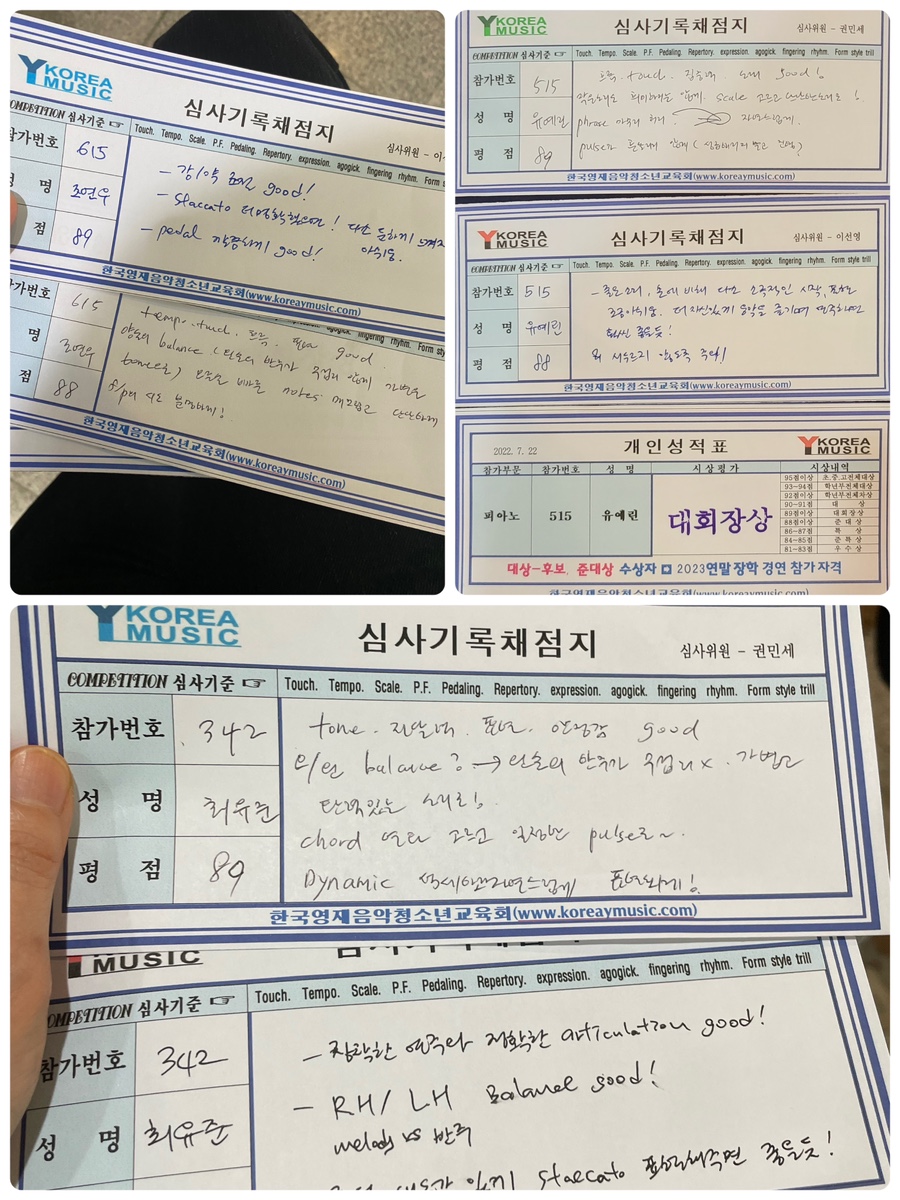 YKOREA
MUSIC
심사기록채점지
심사위원 - 이
COMPETITION 심사기준 ☞
Touch. Tempo. Scale. P.F. Pedaling. Repertory. expression. agogick. fingering rhyhm. Form s
가번호
615
명
조연우
점
89
- 강/약 표현 good!
- staccato 더 명확했으면! 다소 둔하게 느껴져
아쉬움.
- pedal 깔끔하게 good!
한국영재음악청소년교육회(www.koreaymusic.com)
agogick. fingering rhyhm. Form sty
가번호
615
명
조연우
점
88
tempo. touch. 표현 good
balance (왼손의 반주가 무겁지 않게 가볍게
notes 매끄럽고 단단하게
f/p의 지도 분명하게!
한국영재음악청소년교육회(www.koreaymusic.com)
YKOREA
MUSIC
심사기록채점지
심사위원 - 권민세
COMPETITION 심사기준 ☞
Touch. Tempo. Scale. P.F. Pedaling. Repertory. expression. agogick. fingering rhyhm. Form style trill
참가번호
515
성 명
유예린
평 점
89
touch. 집중력 소리 good!
않게. scale 고르고
phrase 자연스럽게.
pulse가 않게
한국영재음악청소년교육회(www.koreaymusic.com)
YKOREA
MUSIC
심사기록채점지
심사위원 - 이선영
COMPETITION 심사기준 ☞
Touch. Tempo. Scale. P.F. Pedaling. Repertory. expression. agogick. fingering rhyhm. Form style trill
참가번호
515
성 명
유예린
평 점
88
- 좋은 소리, 손에 비해 다소 소극적인 시작, 표현은
조금 아쉬움. 더 자신있게 음악을 즐기며 연주하면
훨씬 좋을듯!
서두르지 않도록 주의!
한국영재음악청소년교육회(www.koreaymusic.com)
2022. 7. 22
개인성적표
YKOREA
MUSIC
참가부문
참가번호
성 명
시상평가
시상내역
피아노
515
유예린
대회장상
95점이상 초.중.고전체대상
93~94점 학년부전체대상
92점이상 학년부전체차상
90~91점 대 상
89점이상 대회장상
88점이상 준 대 상
86~87점 특 상
84~85점 준 특 상
81~83점 우 수 상
대상-후보, 준대상 수상자 2023연말 장학 경연 참가 자격
한국영재음악청소년교육회(www.koreaymusic.com)
YKOREA
MUSIC
심사기록채점지
심사위원 - 권민세
COMPETITION 심사기준 ☞
Touch. Tempo. Scale. P.F. Pedaling. Repertory. expression. agogick. fingering rhyhm. Form style trill
참가번호
342
성 명
최유준
평 점
89
tone. 전달력. 표현. 안정감 good
오/왼 balance? → 왼손의 반주가 무겁지x. 가볍고
탄력있는 소리로!
chord 연타 고르고 일정한 pulse로~.
Dynamic 섬세 표현되게!
한국영재음악청소년교육회(www.koreaymusic.com)
MUSIC
COMPETITION 심사기준 ☞
Touch. Tempo. Scale. P.F. Pedaling. Repertory. expression. agogick. fingering rhyhm. Form style trill
참가번호
342
성 명
최유준
- 침착한 연주와 정확한 articulation good!
- RH/ LH Balance good!
melody vs 반주
staccato 표현해주면 좋을듯!